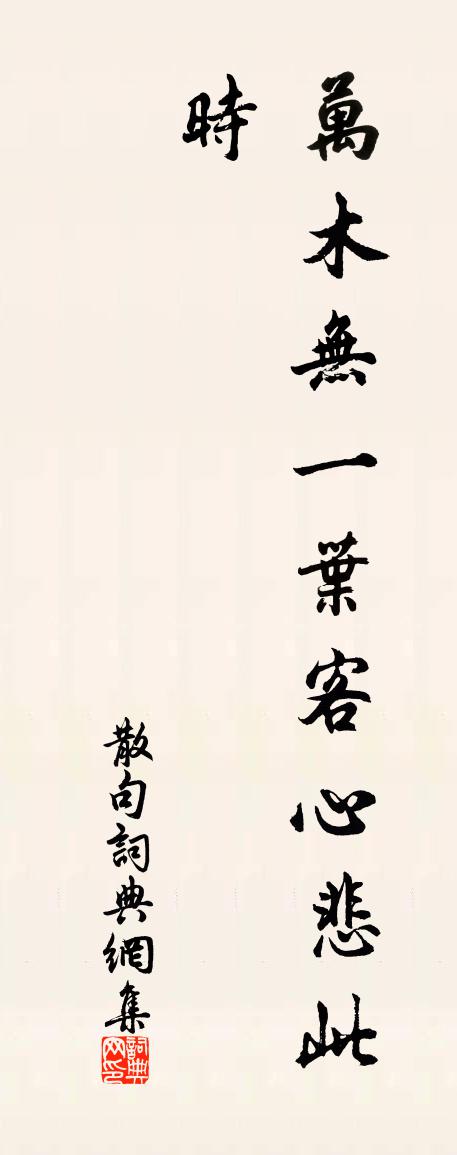 萬木無一葉客心悲此
時
散句詞典網集
詞典
网印